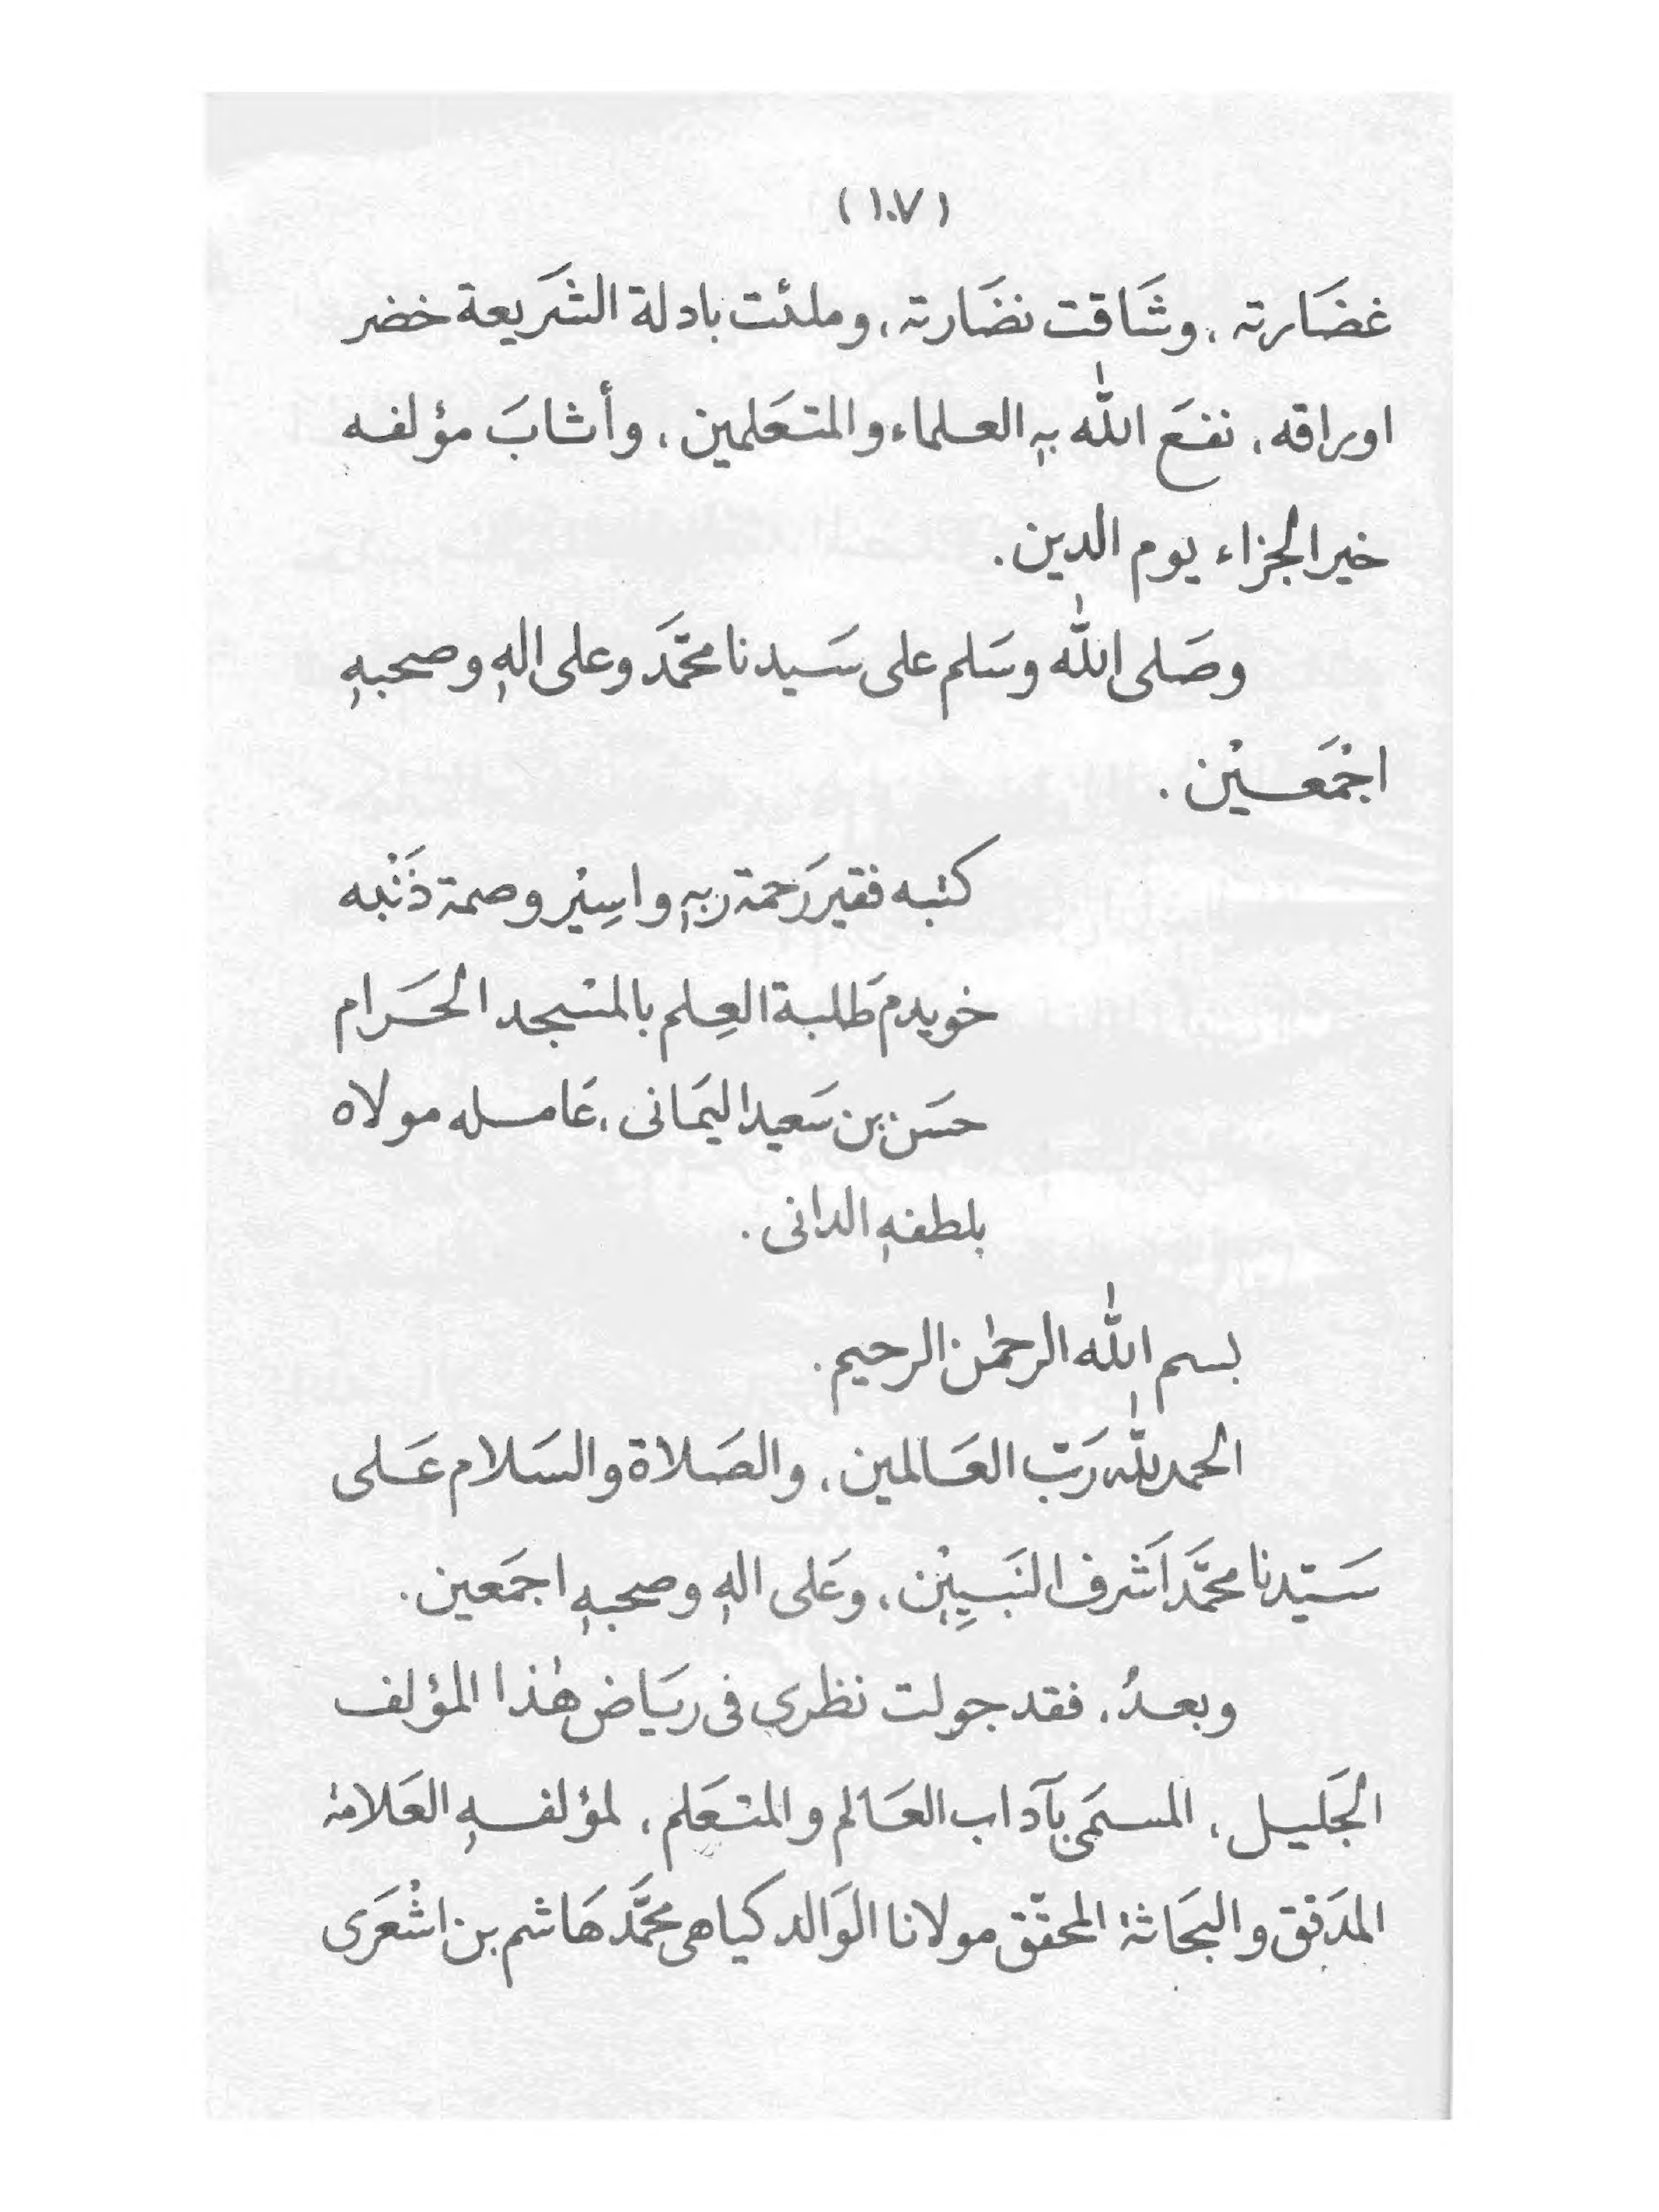 (١٠٧)
غضَارته ، وشَاقت نضَارته ، وملئت بادلة الشَريعة خضر
اوراقه ، نفعَ الله بهِ العلماء والمتعَلمين ، وأثابَ مؤلفه
خير الجزاء يوم الدين .
وصَلى الله وسَلم على سَيدنا محمَّد وعلى الهِ وصحبهِ
اجْمَعيْن .
كتبه فقير رَحمة ربهِ واسِيْر وصمة ذَنْبه
خويدم طَلبة العِلم بالمسْجد الحَرام
حسَن بن سَعيد اليمَانى ، عَامله مولاه
بلطفهِ الدانى .
بسم الله الرحمٰن الرحيم .
الحمد لله رَبّ العَالمين ، والصَلاة والسَلام عَلى
سَيّدنا محمَّد اَشرف النَبيِيْن ، وعَلى الهِ وصحبهِ اجمَعين .
وبعدُ ، فقد جولت نظرى فى ريَاض هٰذا المؤلف
الجَليل ، المسمَى بآداب العَالم والمتعَلم ، لمؤلفهِ العَلامة
المدَقق والبحَاثة المحقّق مولانا الوَالد كياهى محمَّد هَاشم بن اشْعَرى